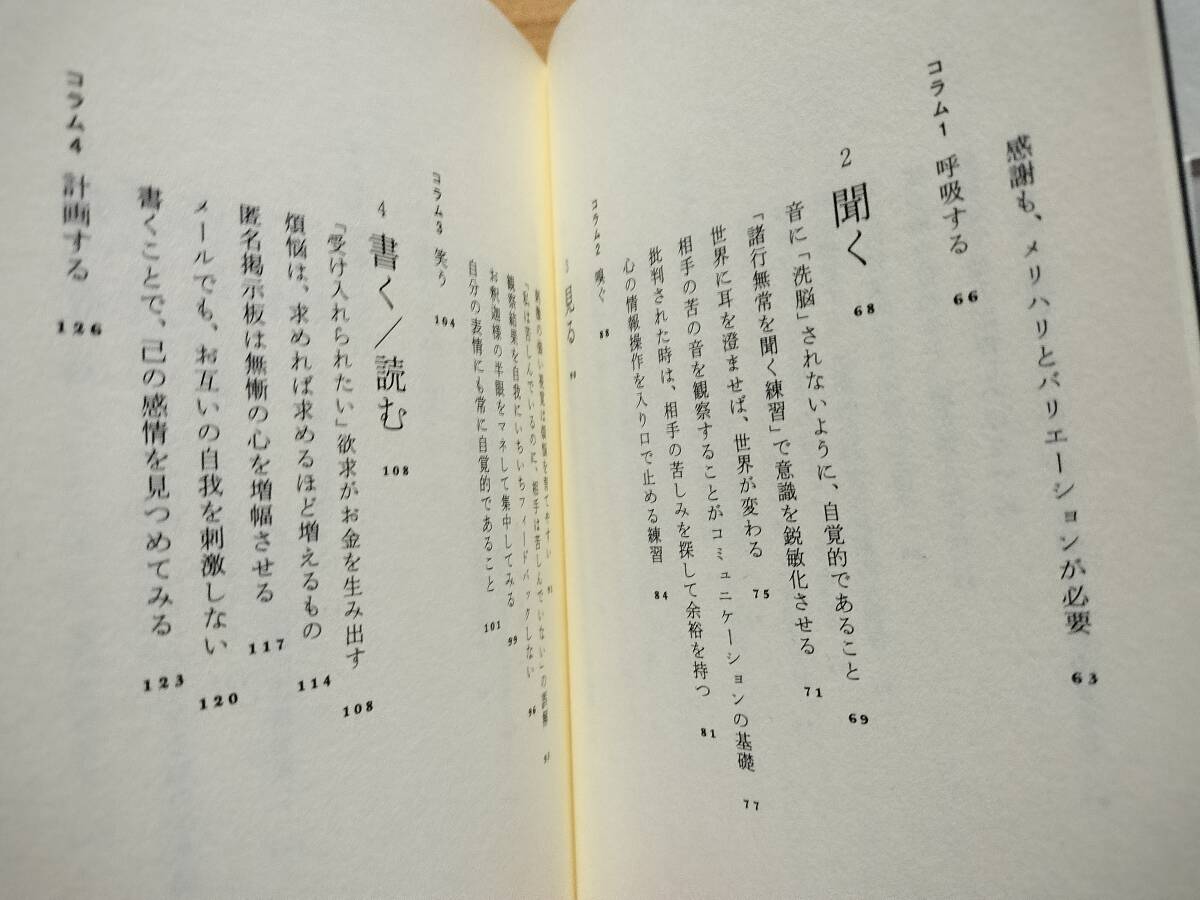 感謝も、メリハリとバリエーションが必要 63
コラム1 呼吸する 66
2 聞く 68
音に「洗脳」されないように、自覚的であること 69
「諸行無常を聞く練習」で意識を鋭敏化させる 71
世界に耳を澄ませば、世界が変わる 75
相手の苦の音を観察することがコミュニケーションの基礎 77
批判された時は、相手の苦しみを探して余裕を持つ 81
心の情報操作を入り口で止める練習 84
コラム2 嗅ぐ 88
3 見る 90
刺激の強い視覚は煩悩を育てやすい 91
「私は苦しんでいるのに、相手は苦しんでいない」の誤解 93
観察結果を自我にいちいちフィードバックしない 96
お釈迦様の半眼をマネして集中してみる 99
自分の表情にも常に自覚的であること 101
コラム3 笑う 104
4 書く/読む 108
「受け入れられたい」欲求がお金を生み出す 108
煩悩は、求めれば求めるほど増えるもの 114
匿名掲示板は無慚の心を増幅させる 117
メールでも、お互いの自我を刺激しない 120
書くことで、己の感情を見つめてみる 123
コラム4 計画する 126